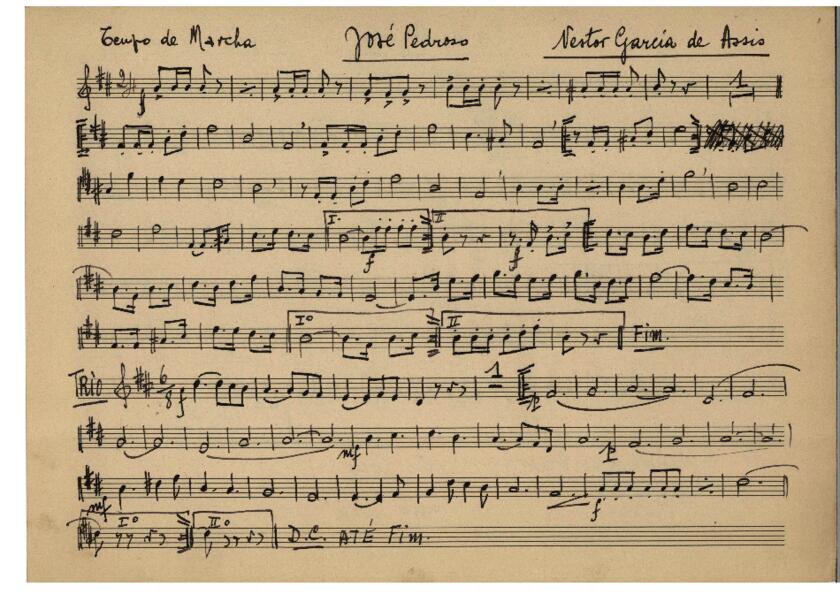 Tempo de Marcha José Pedroso Nestor Garcia de Assis
2/4 f 1
I. II
f f
Iº II Fim.
TRIO 6/8 f 1 p
mf p
mf f
Iº IIº D.C. ATÉ Fim.